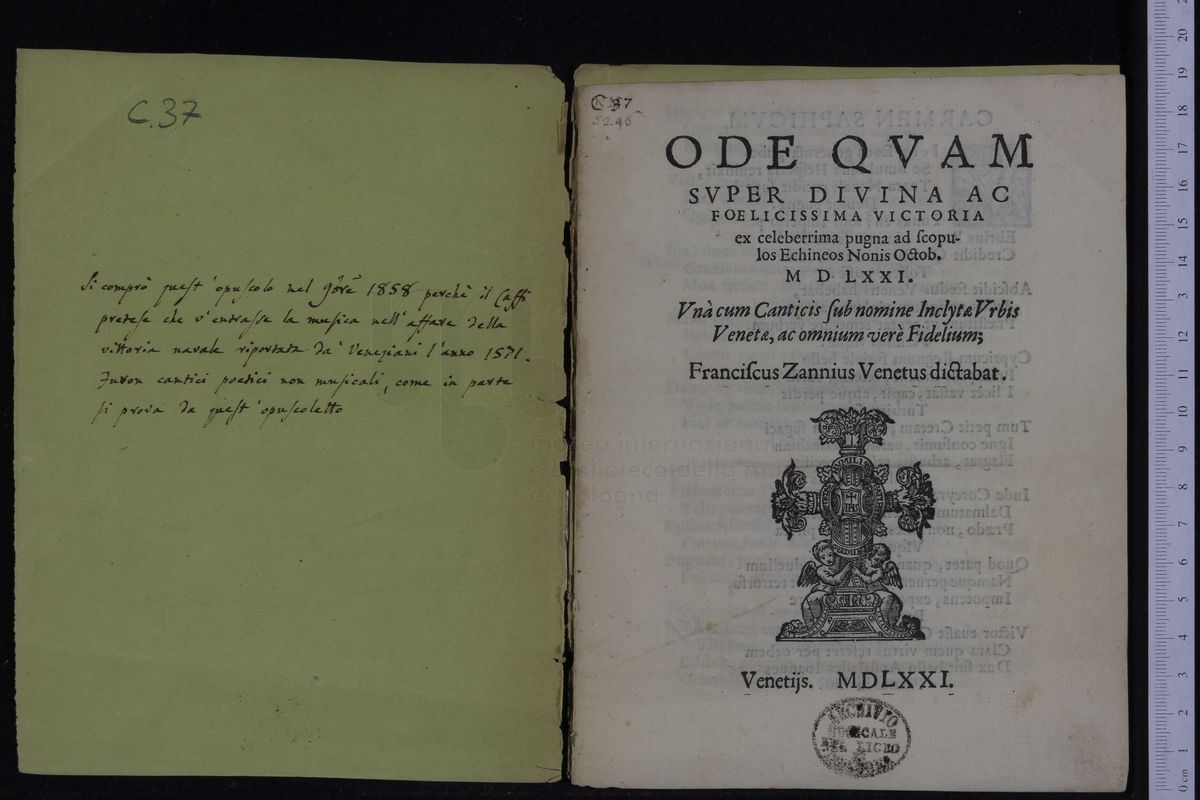 C.37
Si comprò quest' opuscolo nel 9bre 1858 perchè il Caffi
pretese che v'entrasse la musica nell' affare della
vittoria navale riportata da' Veneziani l'anno 1571.
Furon cantici poetici non musicali, come in parte
si prova da quest' opuscoletto
ODE QVAM
SVPER DIVINA AC
FOELICISSIMA VICTORIA
ex celeberrima pugna ad ſcopu-
los Echineos Nonis Octob.
M D LXXI.
Vnà cum Canticis ſub nomine Inclytæ Vrbis
Venetæ, ac omnium verè Fidelium;
Franciſcus Zannius Venetus dictabat.
Venetijs. MDLXXI.
ARCHIVIO
MUSICALE
DEL LICEO
museo internazionale
e biblioteca della musica
di bologna